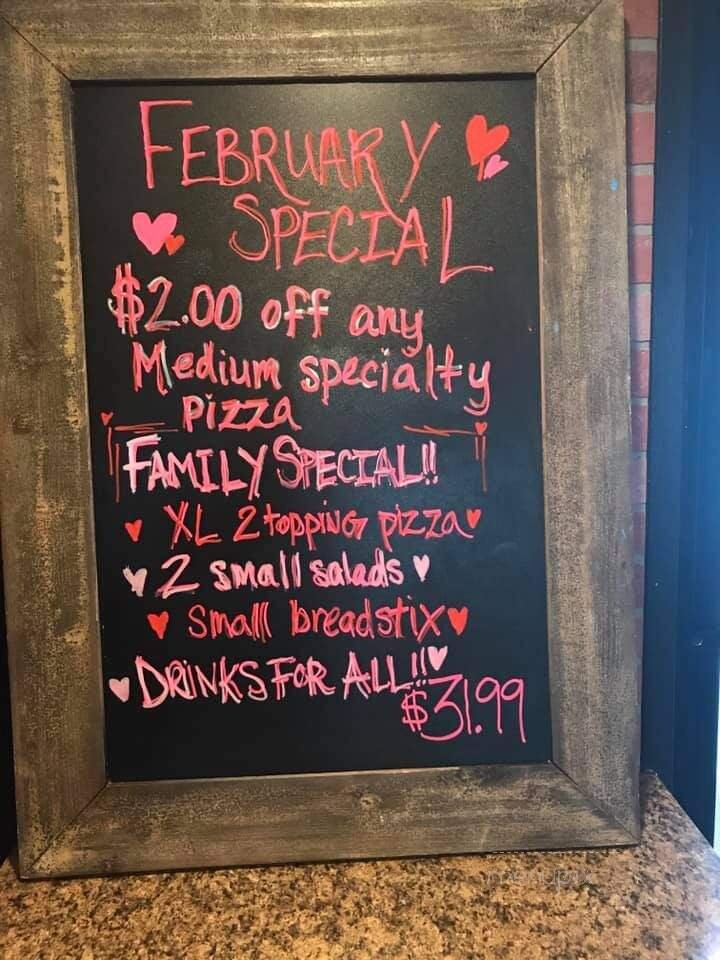 FEBRUARY
SPECIAL
$2.00 off any
Medium specialty
pizza
FAMILY SPECIAL!!
XL 2 topping pizza
2 small salads
small breadstix
DRINKS FOR ALL!!
$31.99